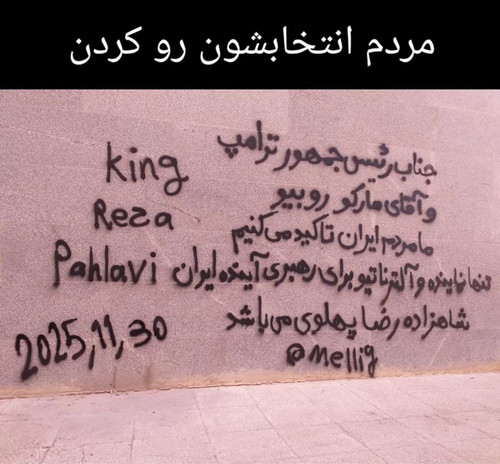 مردم انتخابشون رو کردن
جناب رئیس جمهور ترامپ
و آقای مارکو روبیو
ما مردم ایران تاکید می‌کنیم
تنها نماینده و آلترناتیو برای رهبری آینده ایران
شاهزاده رضا پهلوی می‌باشد
@Mellig
king
Reza
Pahlavi
2025,11,30